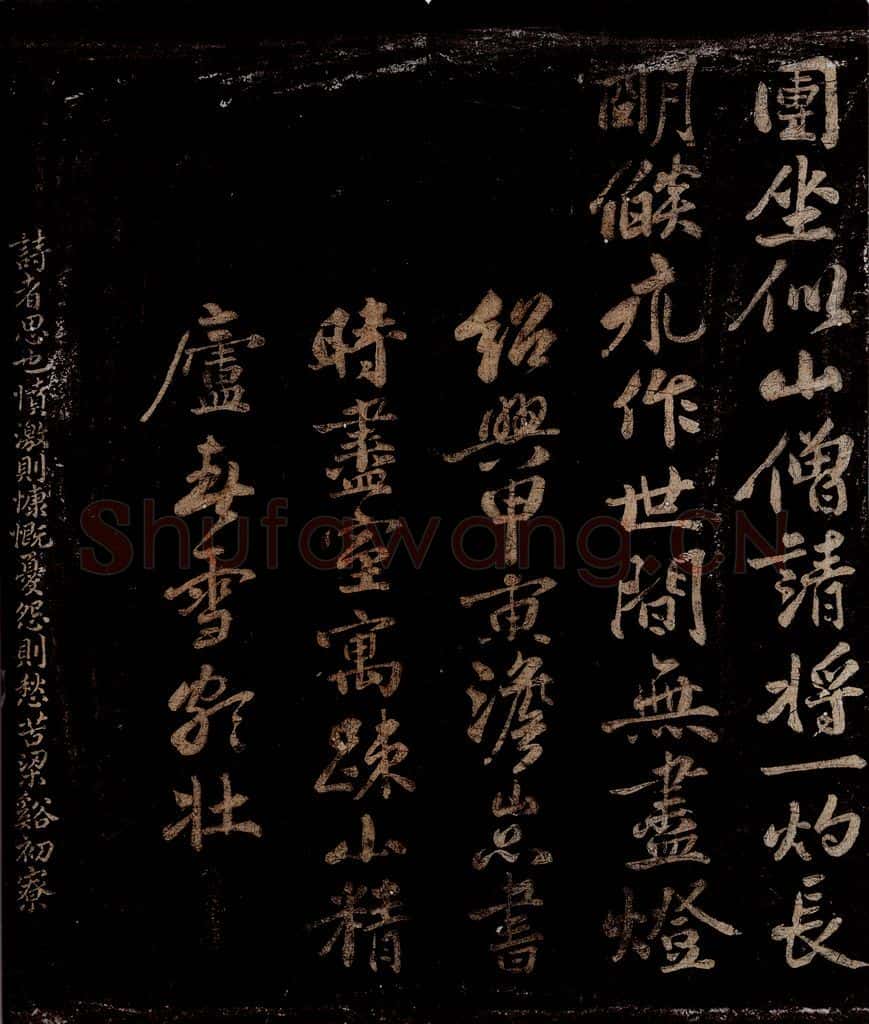 團坐似山僧請將一灼長
明餤永作世間無盡燈
紹興甲寅澹山品書
時盡室寓踈山精
廬春雪初壯
詩者思也憤激則慷慨憂怨則愁苦梁谿初寮
Shufawang.CN